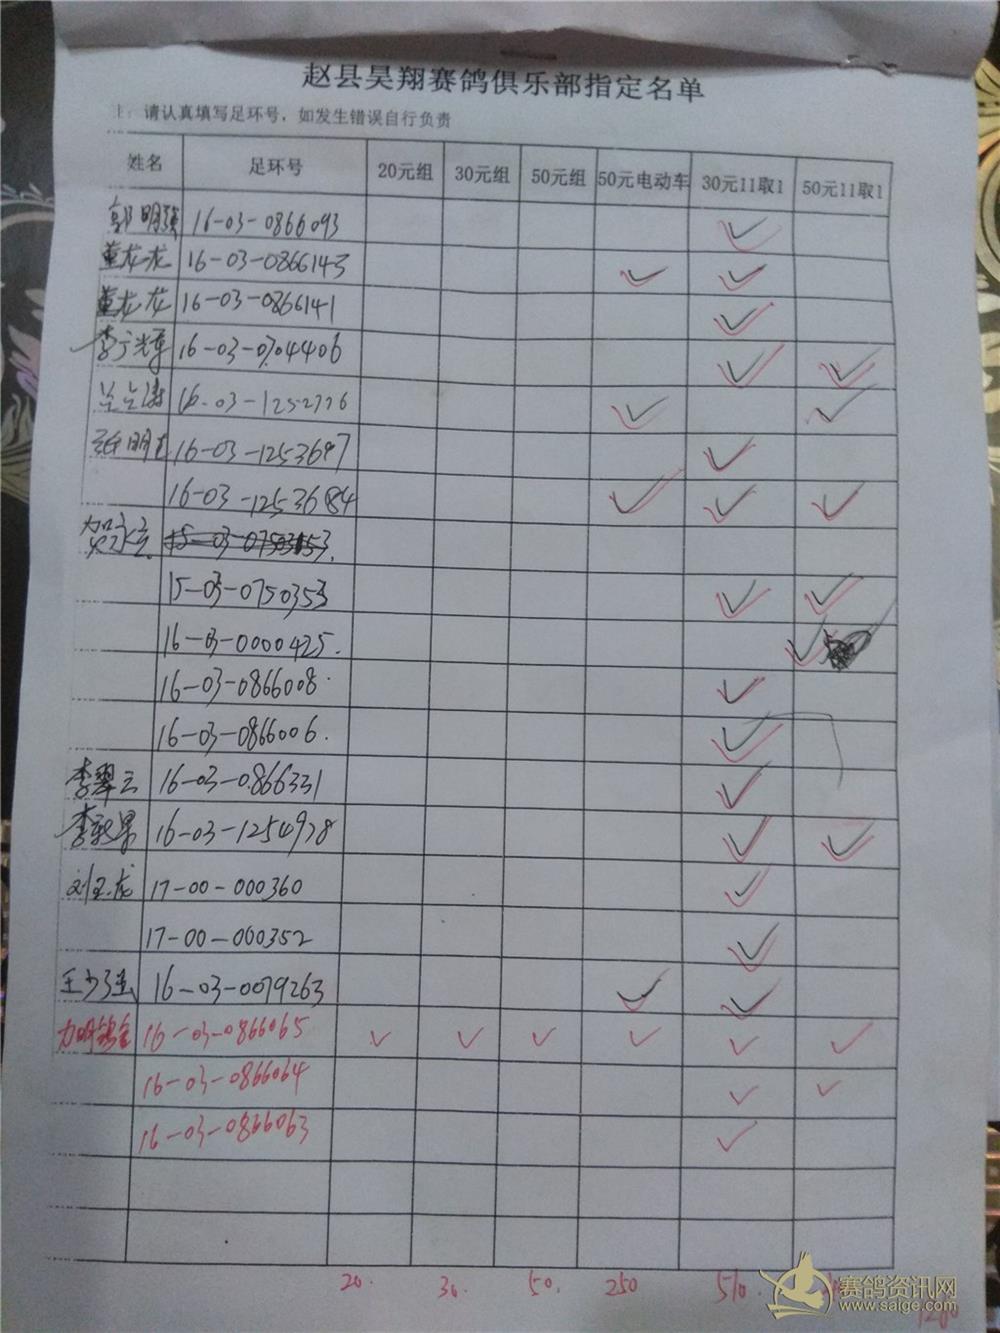 赵县昊翔赛鸽俱乐部指定名单
注：请认真填写足环号，如发生错误自行负责
姓名 足环号 20元组 30元组 50元组 50元电动车 30元11取1 50元11取1
郭明强 16-03-0866093 ✓
董龙龙 16-03-0866143 ✓ ✓
董龙龙 16-03-0866141 ✓
李广辉 16-03-0704406 ✓ ✓
16-03-1252776 ✓ ✓
16-03-1253697 ✓
16-03-1253684 ✓ ✓ ✓
15-03-0750353 ✓ ✓
16-03-0000425. ✓
16-03-0866008. ✓
16-03-0866006. ✓
李翠云 16-03-0866331 ✓
李秋果 16-03-1254978 ✓ ✓
刘玉龙 17-00-000360 ✓
17-00-000352 ✓
王少强 16-03-0079263 ✓ ✓
16-03-0866065 ✓ ✓ ✓ ✓ ✓ ✓
16-03-0866064 ✓ ✓
16-03-0866063 ✓
20. 30. 50. 250 510.
赛鸽资讯网
www.saige.com